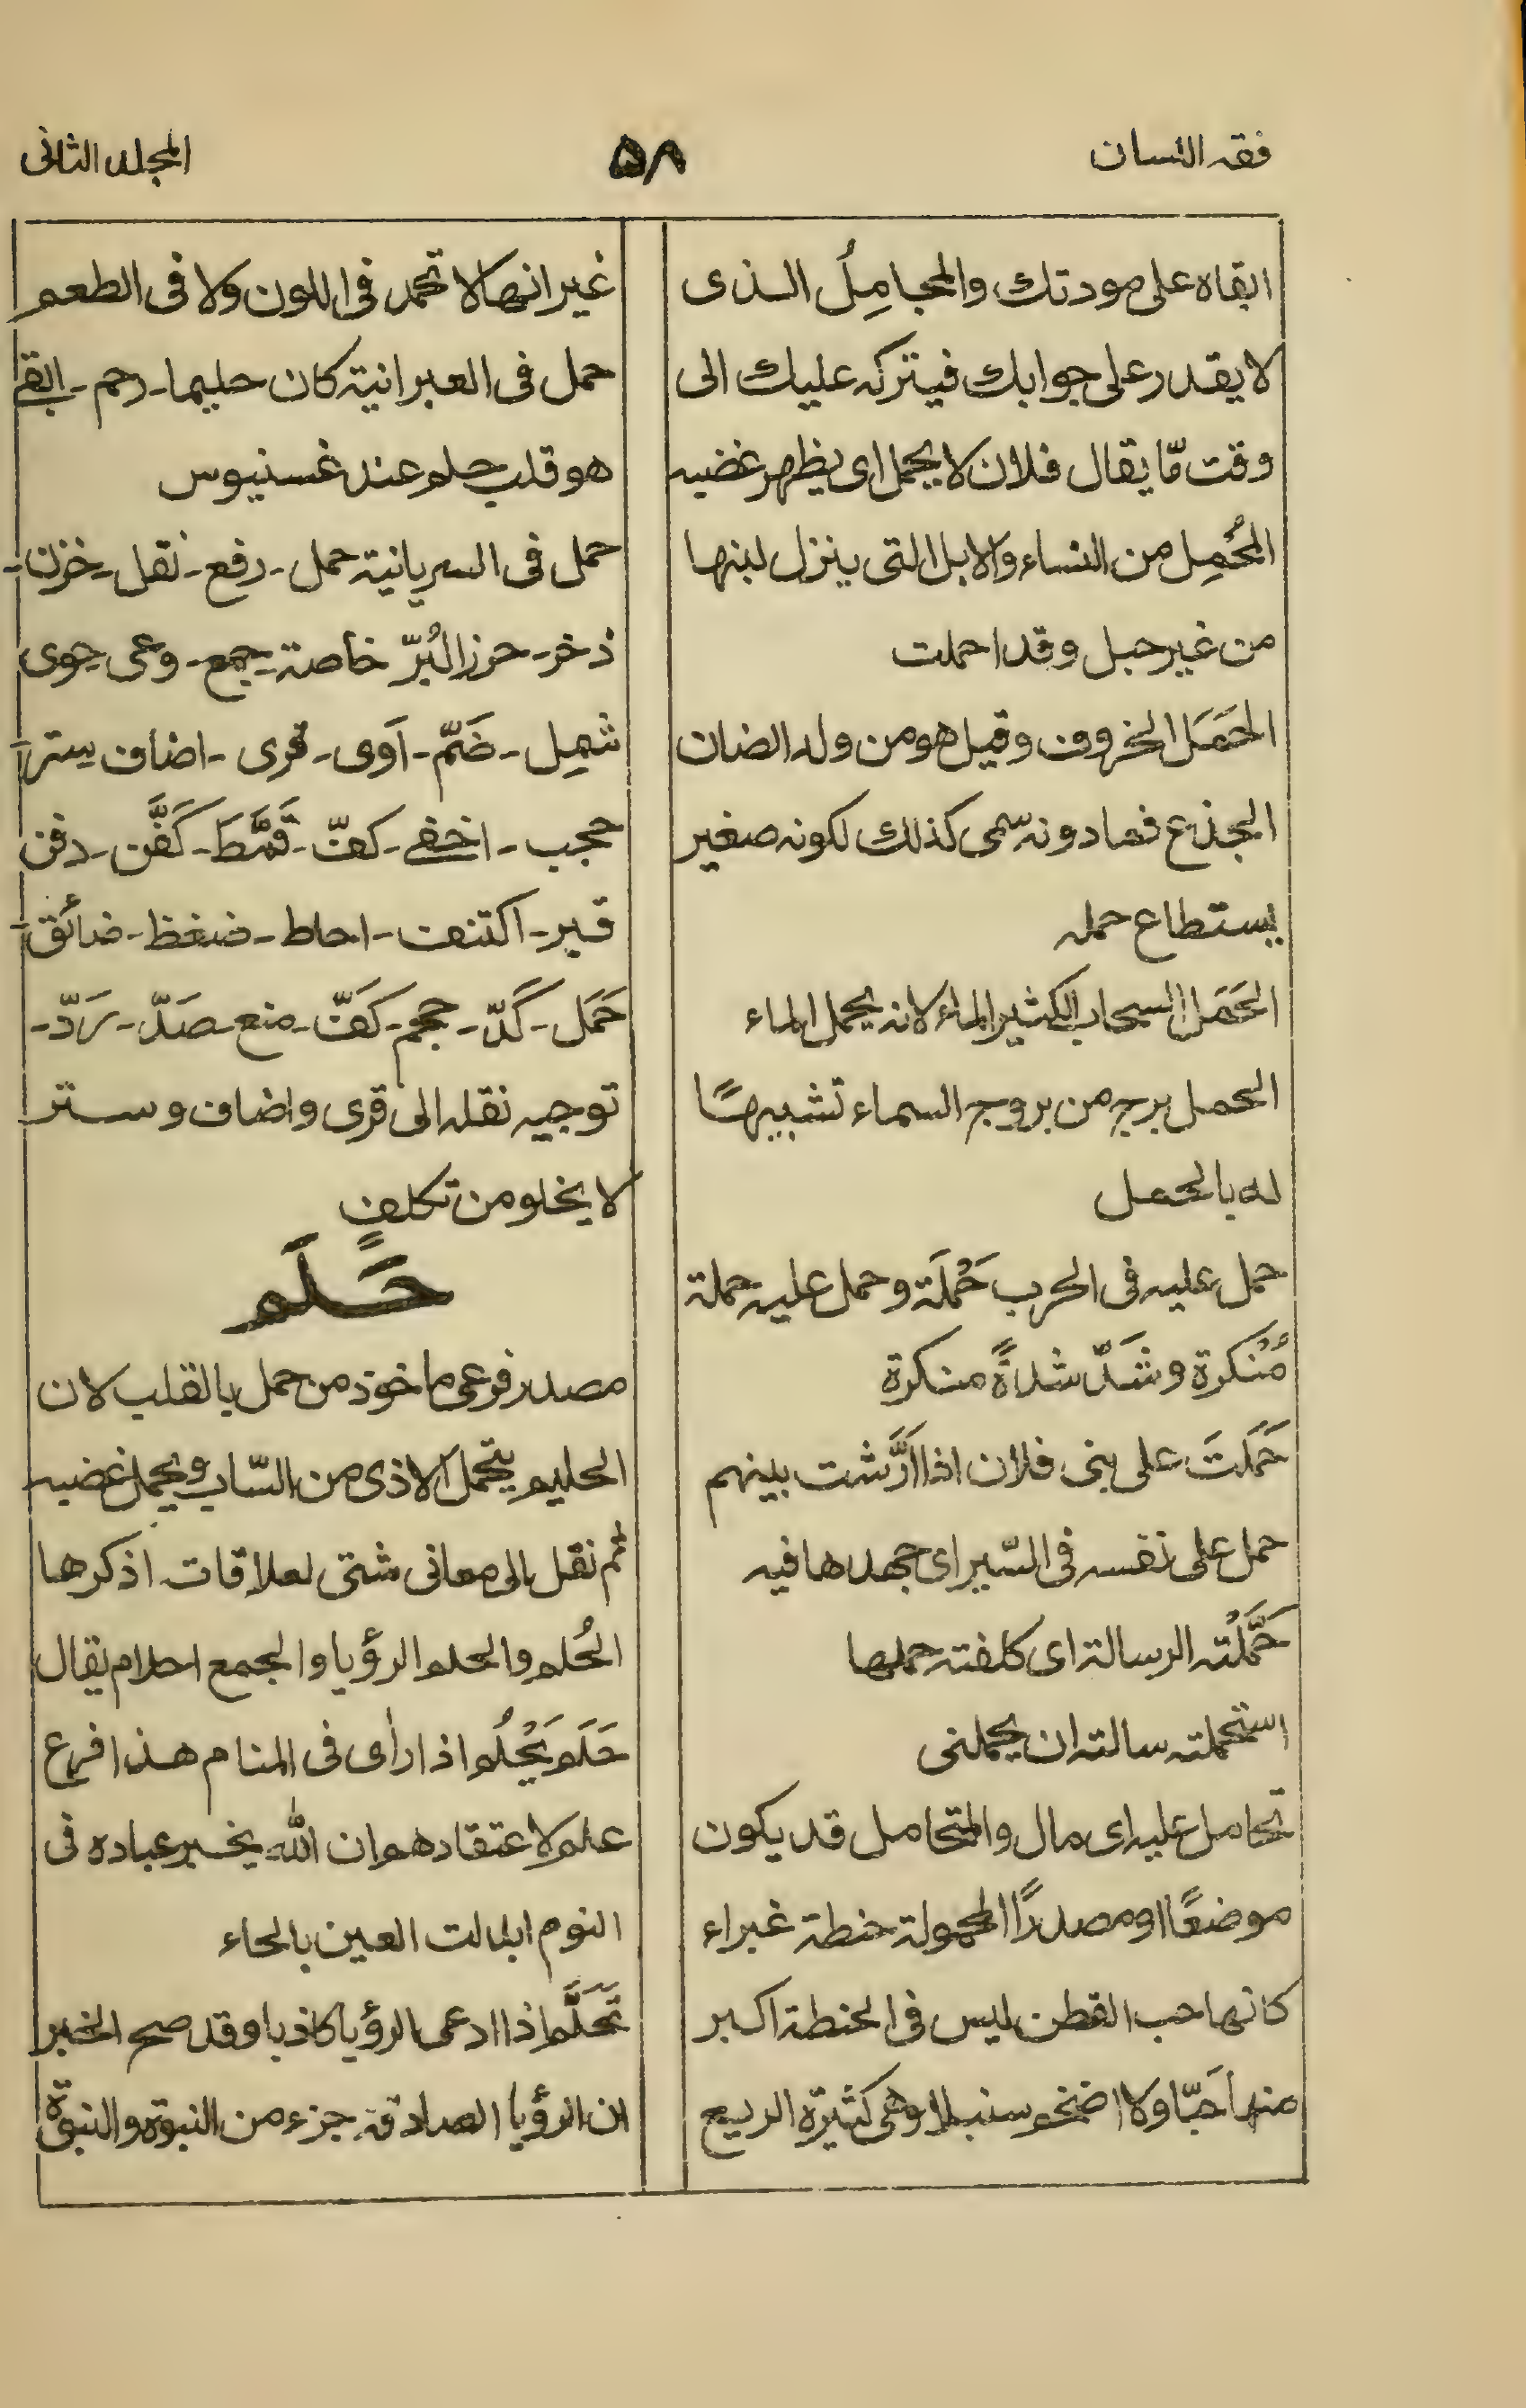 فقه اللسان
٥٨
المجلد الثانی
ابقاه علی مودتك والمجامِلُ الذی
لا یقدر علی جوابك فیترکه علیك الی
وقت مّا یقال فلان لا یحمل ای یظهر غضبه
المُحْمِل من النساء والابل التی ینزل لبنها
من غیر حبل وقد احملت
الحَمَل الخروف وقیل هو من ولد الضان
الجذع فما دونه سمی کذلك لکونه صغیر
یستطاع حمله
الحَمَل السحاب الکثیر الماء لانه یحمل الماء
الحمل برج من بروج السماء تشبیهًا
له بالحمل
حمل علیه فی الحرب حَمْلَة وحمل علیه حملة
مُنْکرة وشَدّ شدةً منکرة
حَمَلتَ علی بنی فلان اذا اَرَّشت بینهم
حمل علی نفسه فی السّیر ای جهدها فیه
حَمَّلْتُه الرسالة ای کلفته حملها
استحملته سالته ان یحملنی
تحامل علیه ای مال والمتحامل قد یکون
موضعًا او مصدرًا الحمولة حنطة غبراء
کانها حب القطن لیس فی الحنطة اکبر
منها حَبّا ولا اضخم سنبلا وهی کثیرة الریع
غیر انها لا تحمد فی اللون ولا فی الطعم
حمل فی العبرانیة کان حلیما - رحم - ابقی
هو قلب حلم عند غسنیوس
حمل فی السریانیة حمل - رفع - نقل - خزن -
ذخر - حرز البُرّ خاصة - جمع - وعی حوی
شمِل - ضَمّ - آوی - قری - اضاف ستر -
حجب - اخفی - کفّ - قَمَّطَ - کَفَّن - دفن
قبر - اکتنف - احاط - ضغظ - ضائق -
حَمَل - کَدّ - حجم - کَفّ - منع - صَدّ - رَدّ -
توجیه نقله الی قری واضاف وستر
لا یخلو من تکلفٍ
حَلَم
مصدر فرعی ماخوذ من حمل بالقلب لان
الحلیم یتحمل الاذی من السّاب ویحمل غضبه
ثم نقل الی معانی شتی لعلاقات اذکرها
الحُلم والحلم الرؤیا والجمع احلام یقال
حَلَم یَحْلُم اذا رأی فی المنام هذا فرع
علم لاعتقادهم ان اللّٰه یخبر عباده فی
النوم ابدلت العین بالحاء
تَحَلَّم اذا ادعی الرؤیا کاذبا وقد صح الخبر
ان الرؤیا الصادقة جزء من النبوة والنبوة